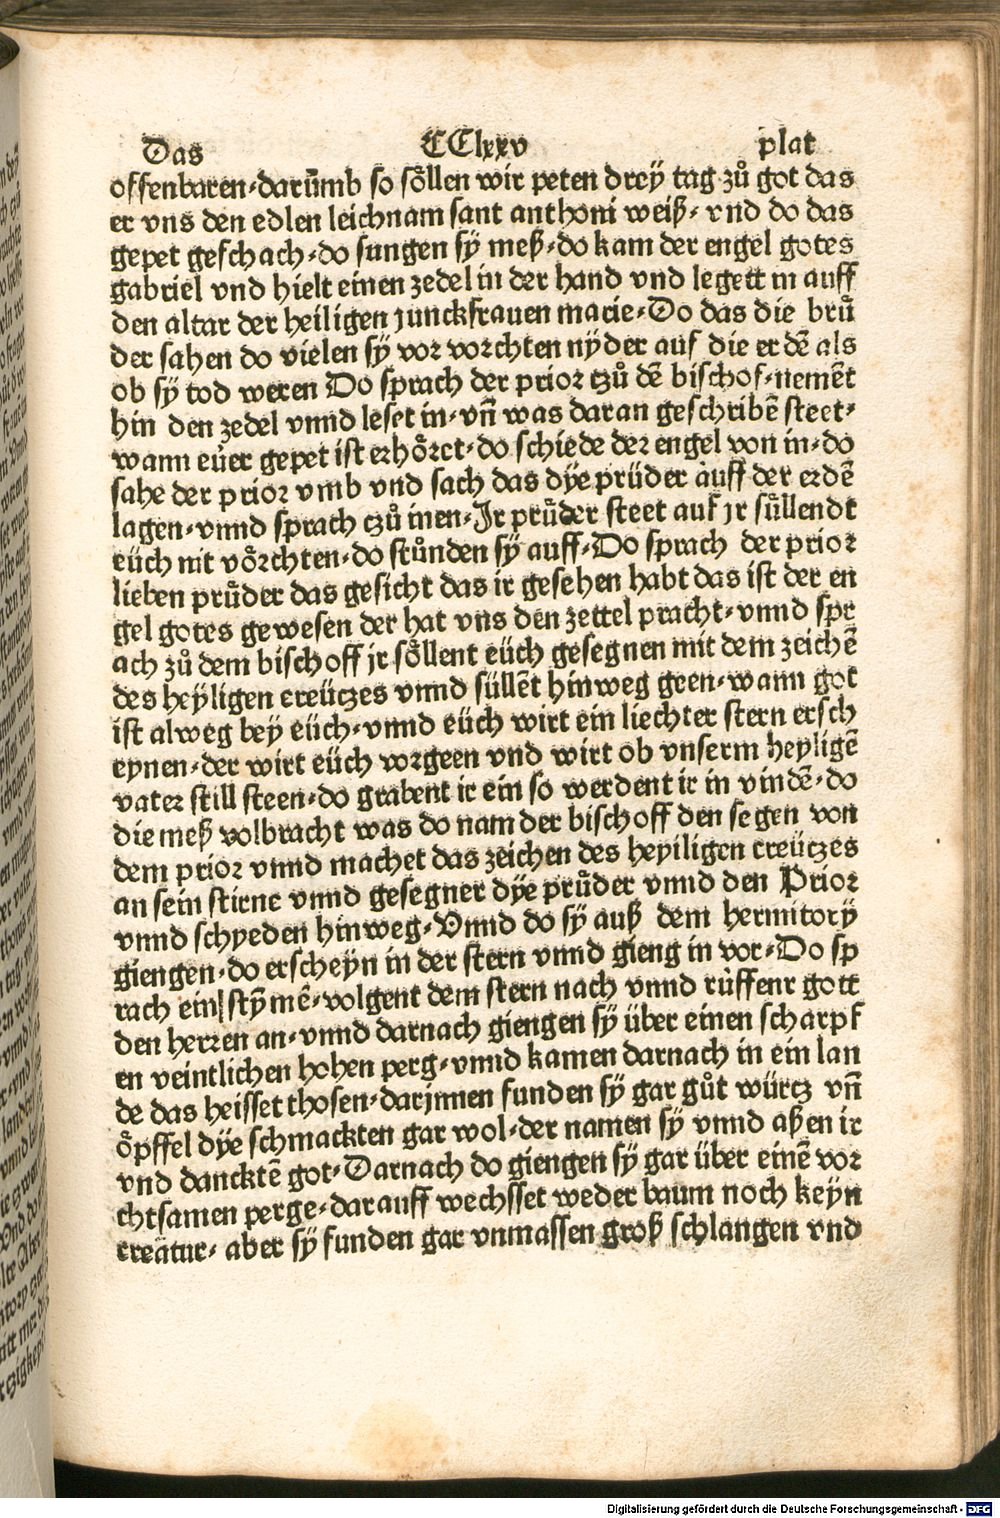 Das CClxxv plat
offenbaren·darům̄b so sőllen wir peten drey tag zů got das
er vns den edlen leichnam sant anthoni weiß· vnd do das
gepet geschach·do sungen sÿ meß·do kam der engel gotes
gabriel vnd hielt einen zedel in der hand vnd legett in auff
den altar der heiligen junckfrauen marie·Do das die brü
der sahen do vielen sÿ vor vorchten nÿder auf die erdē als
ob sÿ tod weren Do sprach der prior tzů dē bischof·nemēt
hin den zedel vnnd leset in·vn̄ was daran geschribē steet·
wann eüer gepet ist erhőret·do schiede der engel von in·do
sahe der prior vmb vnd sach das dÿe prüder auff der erdē
lagen·vnnd sprach tzů inen·Jr prüder steet auf jr süllendt
eüch nit vőrchten·do stůnden sÿ auff·Do sprach der prior
lieben prüder das gesicht das ir gesehen habt das ist der en
gel gotes gewesen der hat vns den zettel pracht·vnnd spr
ach zů dem bischoff jr sőllent eüch gesegnen mit dem zeichē
des heÿligen creützes vnnd süllēt hinweg geen·wann got
ist alweg beÿ eüch·vnnd eüch wirt ein liechter stern ersch
eynen·der wirt eüch vorgeen vnd wirt ob vnserm heyligē
vater still steen·do grabent ir ein so werdent ir in vindē·do
die meß volbracht was do nam der bischoff den segen von
dem prior vnnd machet das zeichen des heyiligen creützes
an sein stirne vnnd gesegner dÿe prüder vnnd den Prior
vnnd schyeden hinweg·Vnnd do sÿ auß dem hermitorÿ
giengen·do erscheyn in der stern vnnd gieng in vor·Do sp
rach ein stÿ̄mē·volgent dem stern nach vnnd rüffent gott
den herren an·vnnd darnach giengen sÿ über einen scharpf
en veintlichen hohen perg·vnnd kamen darnach in ein lan
de das heisset thosen·darjnnen funden sÿ gar gůt würtz vn̄
őpffel dÿe schmackten gar wol·der namen sÿ vnnd aßen ir
vnd dancktē got·Darnach do giengen sÿ gar über einē vor
chtsamen perge·darauff wechsset weder baum noch keyn
creätur· aber sÿ funden gar vnmassen groß schlangen vnd
Digitalisierung gefördert durch die Deutsche Forschungsgemeinschaft - DFG